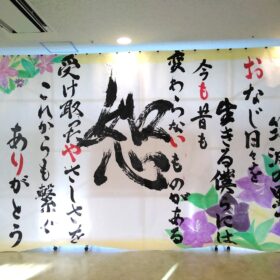 おなじ日々を
生きる僕らには
今も昔も
変わらないものがある
恕
受け取ったやさしさを
これからも繋ぐ
ありがとう